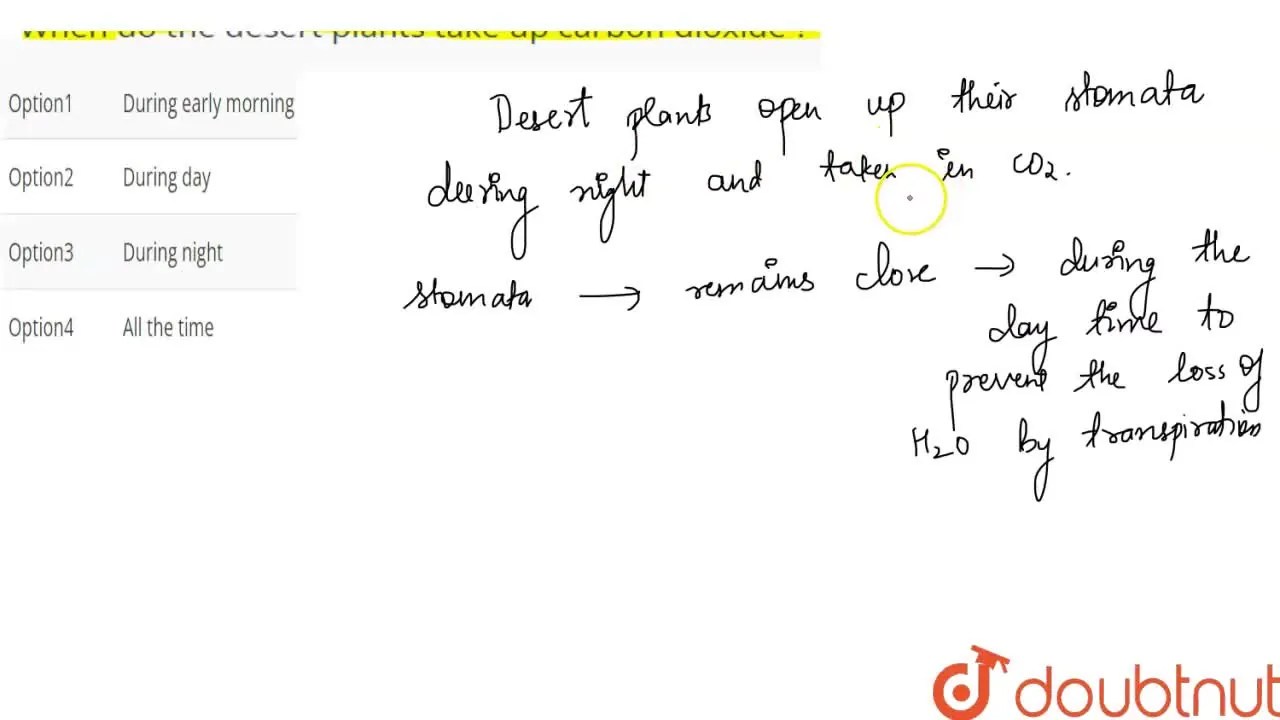 When do the desert plants take up carbon dioxide ?
Option1 During early morning
Option2 During day
Option3 During night
Option4 All the time
Desert plants open up their stomata
during night and taken in CO2.
stomata → remains close → during the
day time to
prevent the loss of
H2O by transpiration
doubtnut